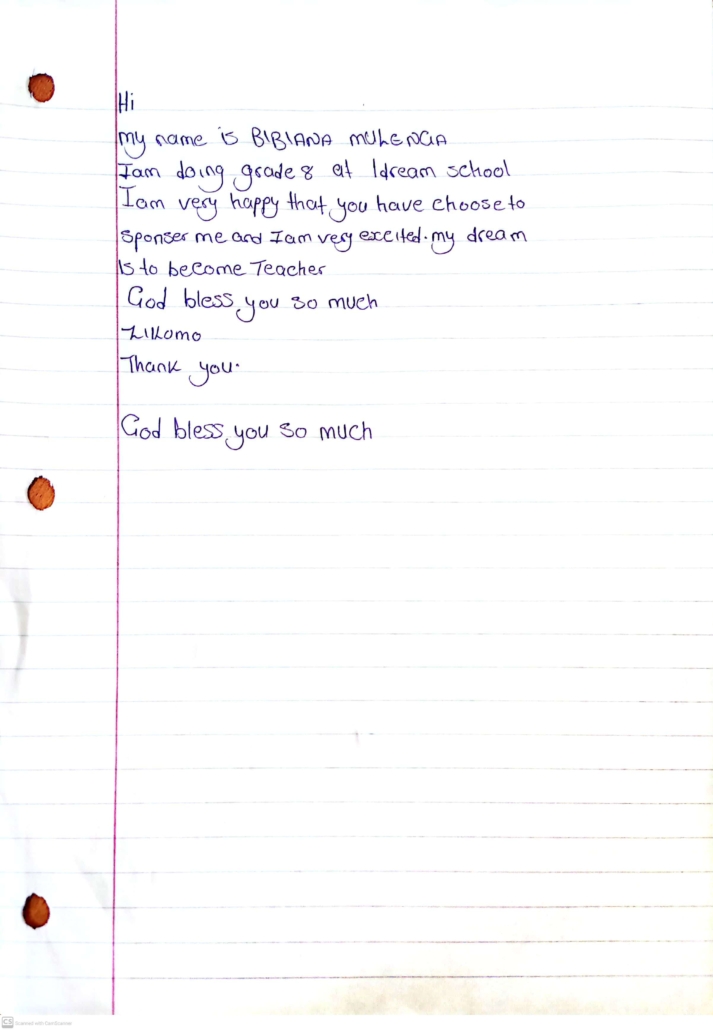 Hi
my name is BIBIANA MULENGA
Iam doing grade 8 at Idream school
Iam very happy that you have choose to
sponser me and Iam very excited. my dream
Is to become Teacher
God bless you so much
ZIKomo
Thank you.
God bless you so much
CS Scanned with CamScanner